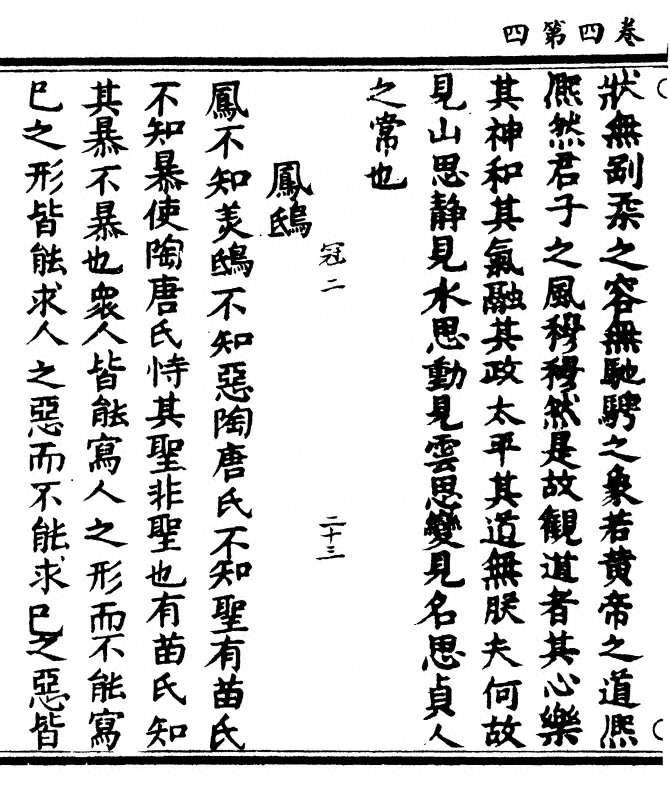 卷四第四
狀無剛柔之容無馳騁之象若黃帝之道熈
熈然君子之風穆穆然是故觀道者其心樂
其神和其氣融其政太平其道無朕夫何故
見山思静見水思動見雲思變見名思貞人
之常也
冠二 二十三
鳳鴟
鳳不知羙鴟不知惡陶唐氏不知聖有苗氏
不知暴使陶唐氏恃其聖非聖也有苗氏知
其暴不暴也衆人皆能寫人之形而不能寫
巳之形皆能求人之惡而不能求巳之惡皆